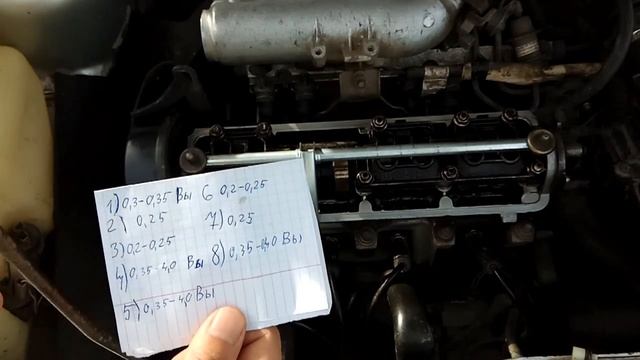 1) 0,3-0,35 Вы
2) 0,25
3) 0,2-0,25
4) 0,35-4,0 Вы
5) 0,35-4,0 Вы
6 0,2-0,25
7) 0,25
8) 0,35-0,40 Вы